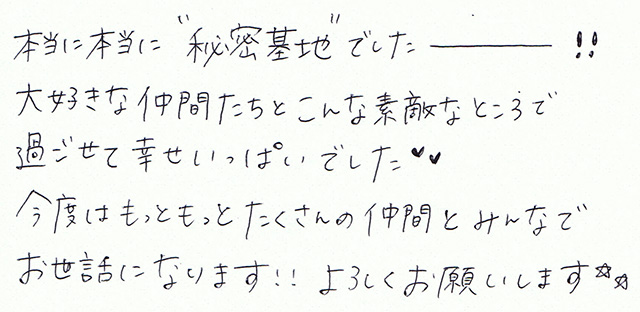 本当に本当に"秘密基地"でした―――!!
大好きな仲間たちとこんな素敵なところで
過ごせて幸せいっぱいでした♥♥
今度はもっともっとたくさんの仲間とみんなで
お世話になります!! よろしくお願いします☆☆